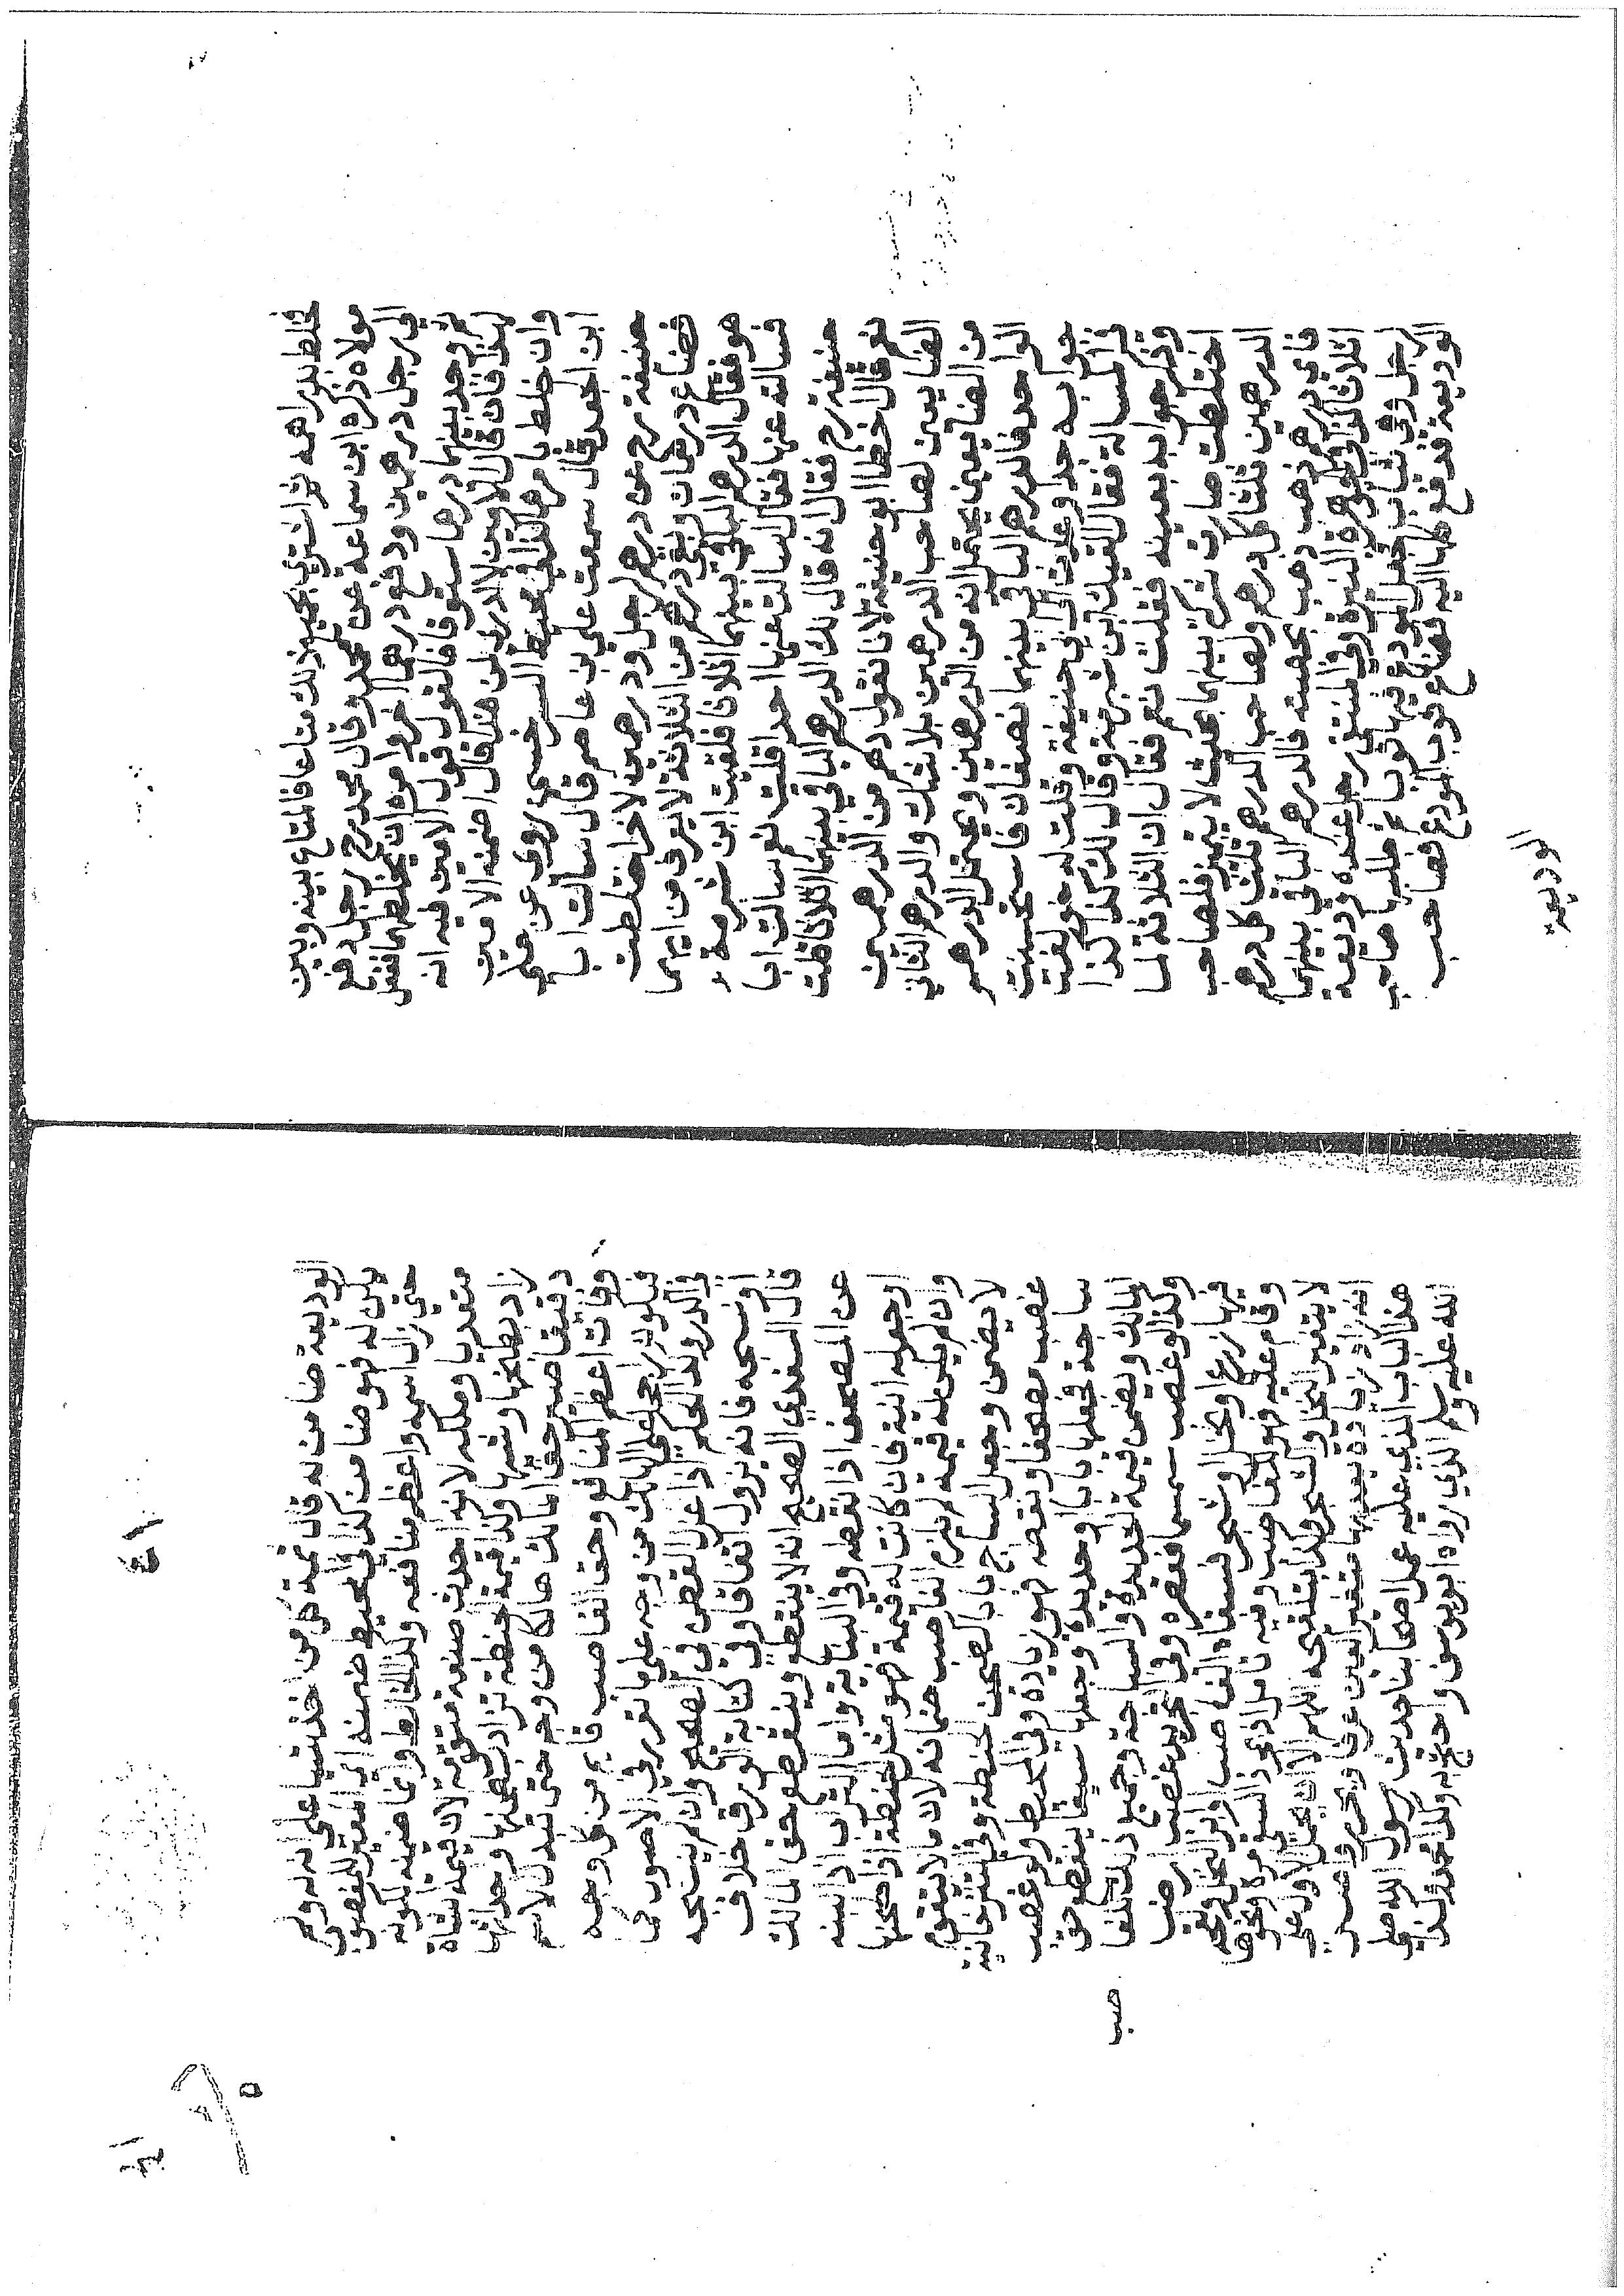 فخلط الدراهم ثم اشترى بجميع ذلك متاعا فالمتاع بينه وبين
مولاه ذكره ابن سماعة عن محمد وقال محمد رح رجل دفع
الى رجل درهمين ودفع درهما اخر وامره ان يخلطهما ففعل
ثم وجد بينهما درهما ستوقا فالقول قول الامين فيه انه
لهذا فان قال الامين لا ادري لمن هذا قال اضمنه الامين
وان خلط بامرهما كذا في محيط السرخسي روى عن علي
ابن الجعد قال سمعت علي بن عاصم قال سالت ابا
حنيفة رح عن درهم لرجل ودرهمين لاخر اختلطت
فضاع درهمان وبقي درهم من الثلاثة لا يعرف من ايهما
هو فقال الدرهم الباقي بينهما اثلاثا فلقيت ابن شبرمة
فسالته عنها فقال اسالت عنها احدا قلت نعم سالت ابا
حنيفة رح فقال انه قال لك الدرهم الباقي بينهما اثلاثا قلت
نعم قال اخطا ابو حنيفة لانا نقول درهم من الدرهمين
الضايعين لصاحب الدرهمين بلا شك والدرهم الثاني
من الضايعين يحتمل انه من الدرهمين ويحتمل الدرهم
الواحد فالدرهم الباقي بينهما نصفان فاستحسنت
جوابه جدا وعدت الى ابي حنيفة وقلت له خولفت
في المسالة فقال القيك ابن شبرمة وقال لك كذا كذا
وذكر جوابه بعينه فقلت نعم فقال ان الثلاثة لما
اختلطت صارت شركة بينهما بحيث لا يتميز فلصاحب
الدرهمين ثلثا كل درهم ولصاحب الدرهم ثلث كل درهم
فاي درهم ذهب ذهب بحصته فالدرهم الباقي بينهما
اثلاثا كذا في الجوهرة النيرة وفي المنتقى رجل عنده وديعة
لرجل وهي ثياب فجعل المودع فيها ثوبا له ثم طلبها صاحب
الوديعة فدفع كلها اليه فضاع ثوب المودع فصاحب
الوديعة
٤١
الوديعة ضامن له قال ثمة كل من اخذ شيا على انه له ولم
يكن له فهو ضامن كذا في المحيط ضمنه اي المغير للمغصوب
حتى زال اسمه واعظم منافعه وكذا الخالط وانما ضمنه لكونه
متعديا وملكه لانه احدث صنعة متقومة لان قيمة الشاة
تزاد بطبخها وشيها وكذا قيمة الحنطة تزاد بطحنها وجعلها
دقيقا صير حق المالك هالكا من وجه حتى تبدل الاسم
وفات اعظم المنافع وحق الغاصب قايم من كل وجه
فيكون راجحا على الهالك من وجه على ما تقرر في الاصول كما
في الدرر وكذا الحكم اذا غزل القطن في الصحيح وان لم ينسجه
او نسجه فانه يزول اتفاقا وفي كتابة الورق خلاف
قال السغدي الصحيح انه لا ينقطع وينقطع حق المالك
عن المصحف اذا نقطه وفي البناية واما التراب اذا لبنه
او جعله انية فان كانت له قيمة فهو مثل الحنطة اذا طحنها
وان لم يكن له قيمة لم يلزم الغاصب ضمانه لان ما لا يتقوم
لا يضمن وجعل الساج بابا كطحن الحنطة وفي التترخانية
غصب مصحفا ونقطه فهو زيادة وفي المحيط ولو غصب
ساجة فجعلها بابا او حديدة وجعلها سيفا ينقطع حق
المالك ويضمن قيمة الحديدة والساجة وجميع ذلك للغا
صب
ولذا لو غصب سمسما فعصره وفي التجريد غصب ارضا
فيها زرع او نخل او شجر فسقاه الغاصب او ابر النخل ولقحه
وقام عليه فهو للغاصب وفيه تامل اذ مجرد السقي مرة ونحوها
لا يتغير النخل والشجر وكذا بتلقيحه اللهم الا ان يحمل الاول على
انه زاد زيادة يعد بها متغير العين عرفا ويحرر والله
هذا الباب الذي عليه عمل اصحابنا حديث رسول الله صلى
الله عليه وسلم الذي رواه ابو يوسف واحتج به وكذا محمد وكذا